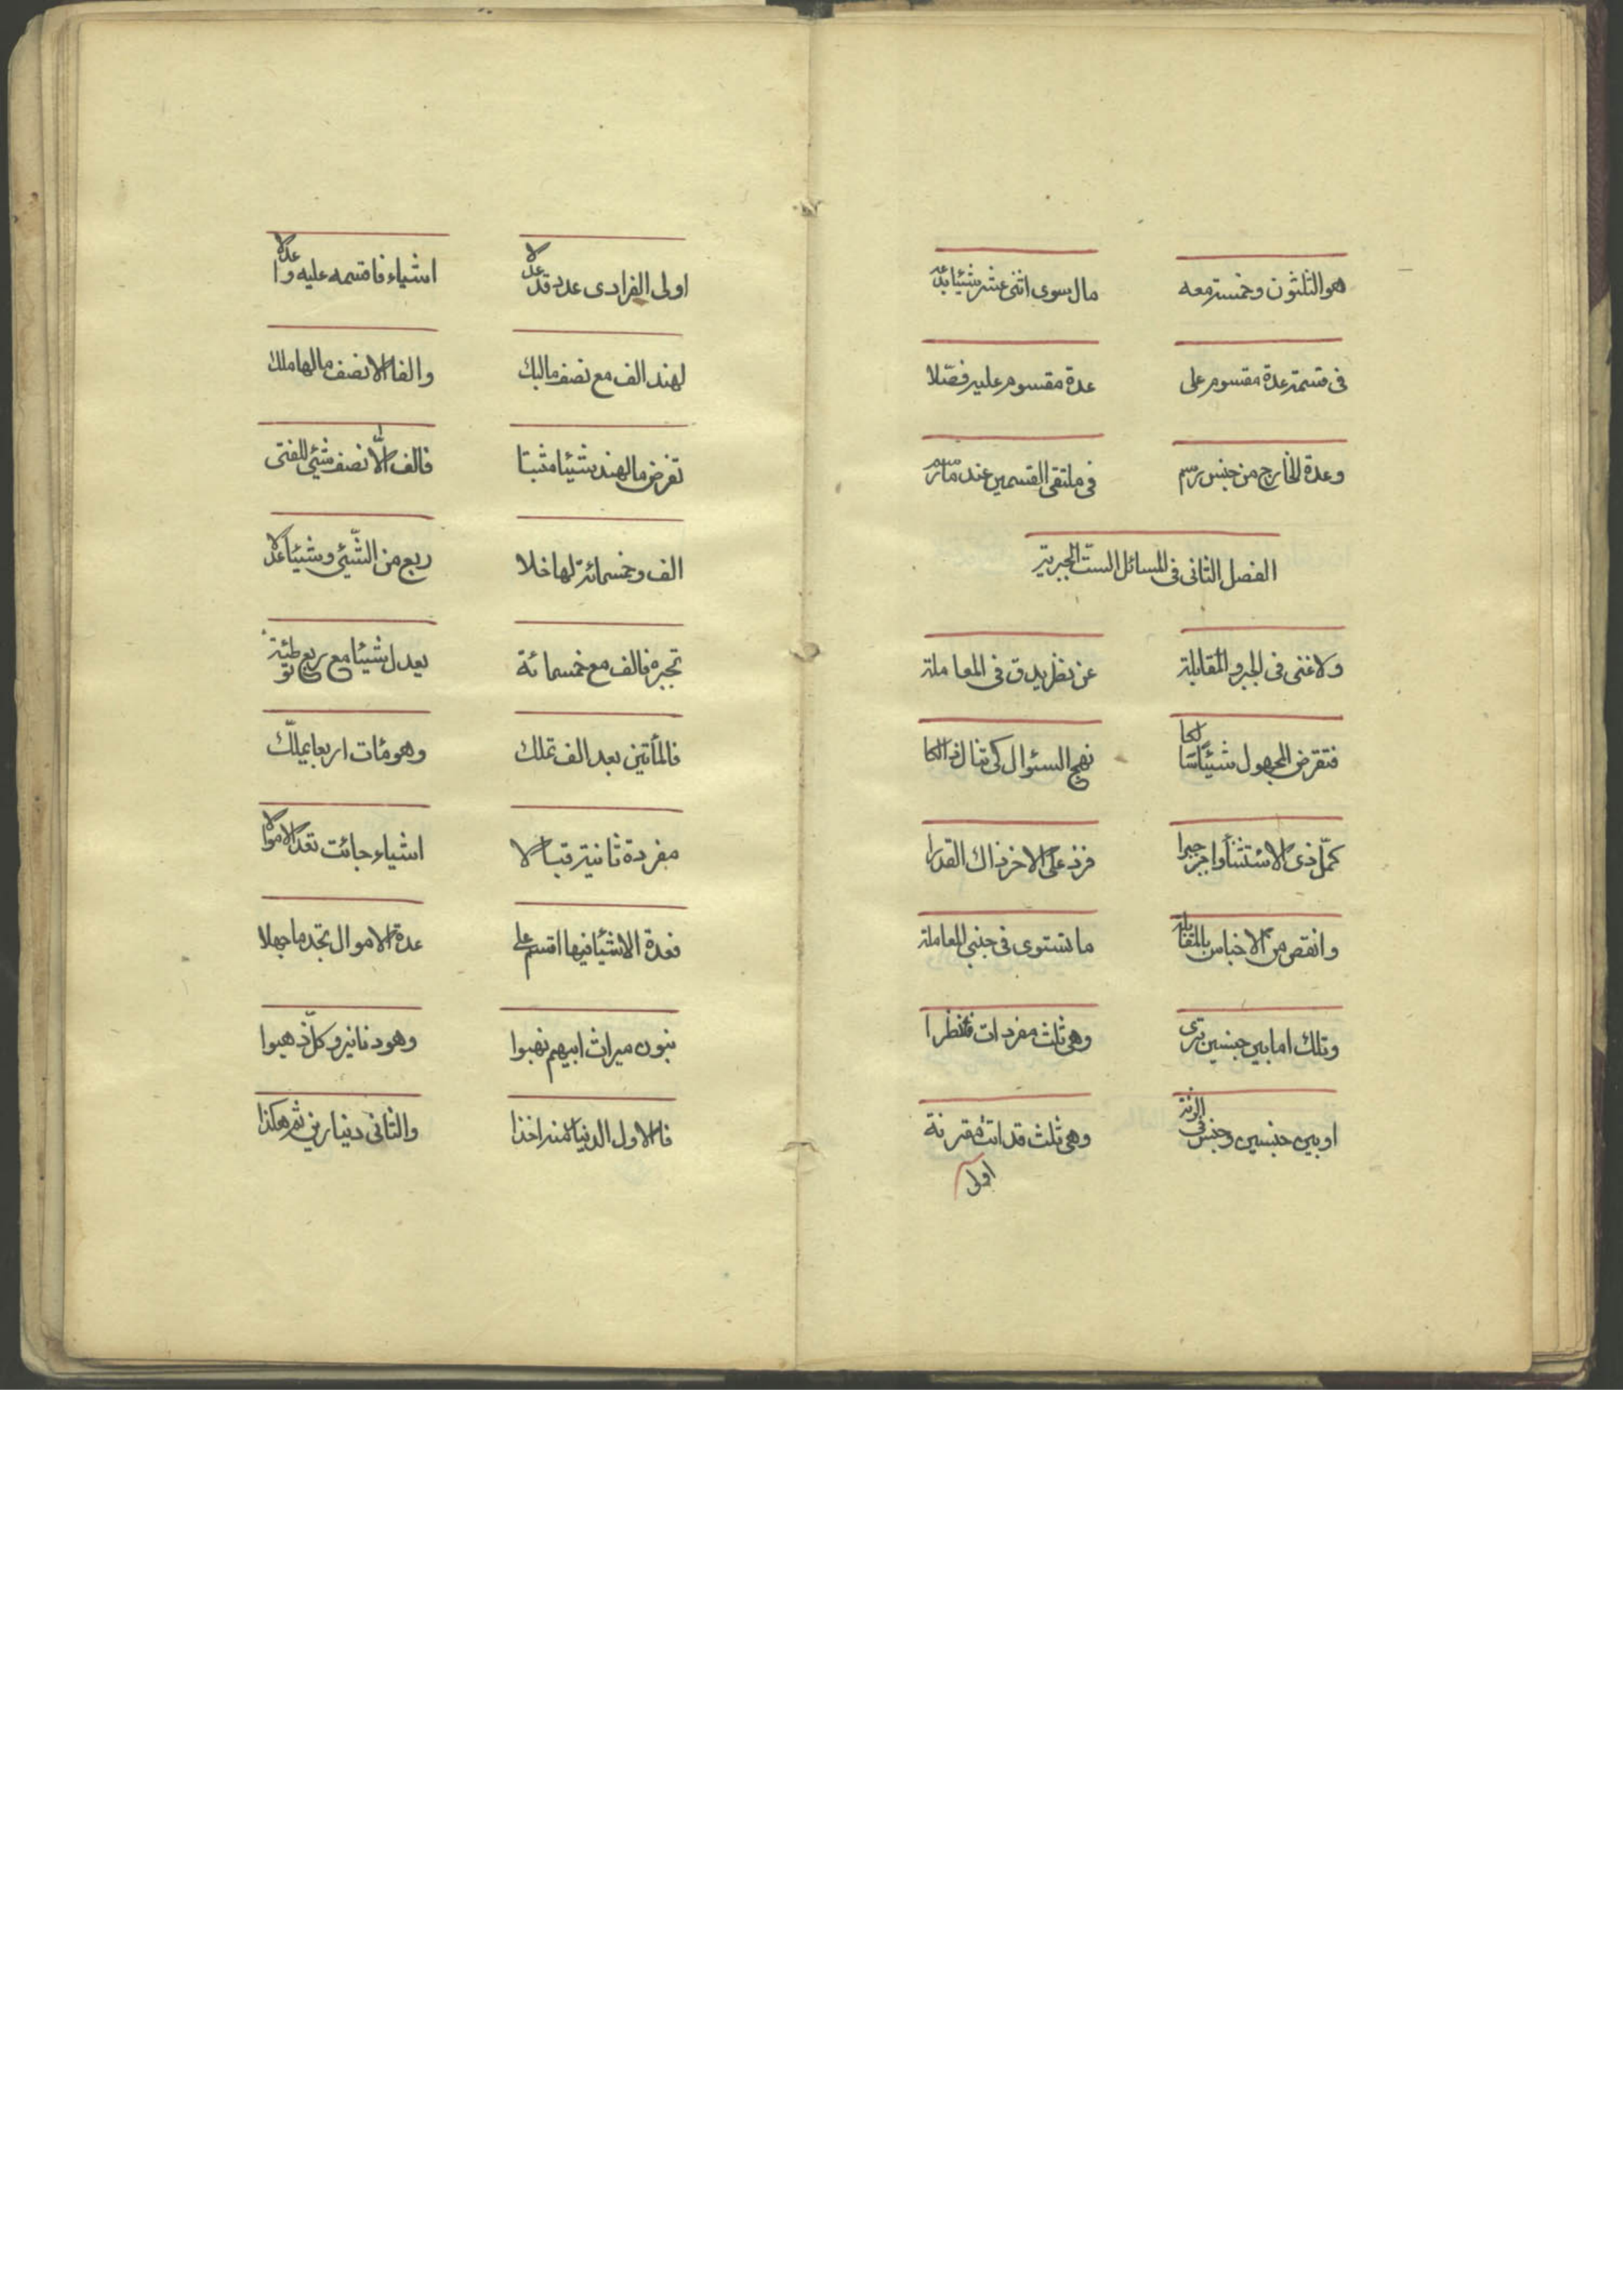 هو الثلثون وخمسة معه مال سوى اثنى عشر شيئا
فى قسمة عدة مقسوم على عدة مقسوم عليه فصّلا
وعدة الخارج من جنس رسم فى ملتقى القسمين عند
الفصل الثانى فى المسائل الست الجبرية
ولا غنى فى الجبر والمقابلة عن نظر يدق فى المعاملة
فتفرض المجهول شيئا سالكا نهج السئوال كى تنال ذالكا
كمّل ذى الاستثنأ واجر جبرا فزد على الاخر ذاك القدرا
وانقص من الاجناس بالمقابله ما تستوى فى جنبى المعاملة
وتلك اما بين جنسين ترى وهى ثلث مفردات فانظرا
او بين جنسين وجنس فى الزنة وهى ثلث قد اتت مقترنة
اولى
اولى الفرادى عدد قد عدلا اشياء فاقسمه عليه
لهند الف مع نصف مالبك والفا الا نصف مالها ملك
تفرض ما لهند شيئا مثبتا فالف الّا نصف شئي للفتى
الف وخمسمائة لها خلا ربع من الشّيئ وشيئا عدلا
تجبره فالف مع خمسمائة يعدل شيئا مع ربع
فالمأتين بعد الف تملك وهو مئات اربعا يملّك
مفردة ثانية قبالا اشياء جائت تعدل الاموالا
فعدة الاشئا فيها اقسم على عدة الاموال تجد ما جهلا
بنون ميراث ابيهم نهبوا وهو دنانير وكلّ ذهبوا
فالاول الدينار منه اخذا والثانى دينارين ثم هكذا